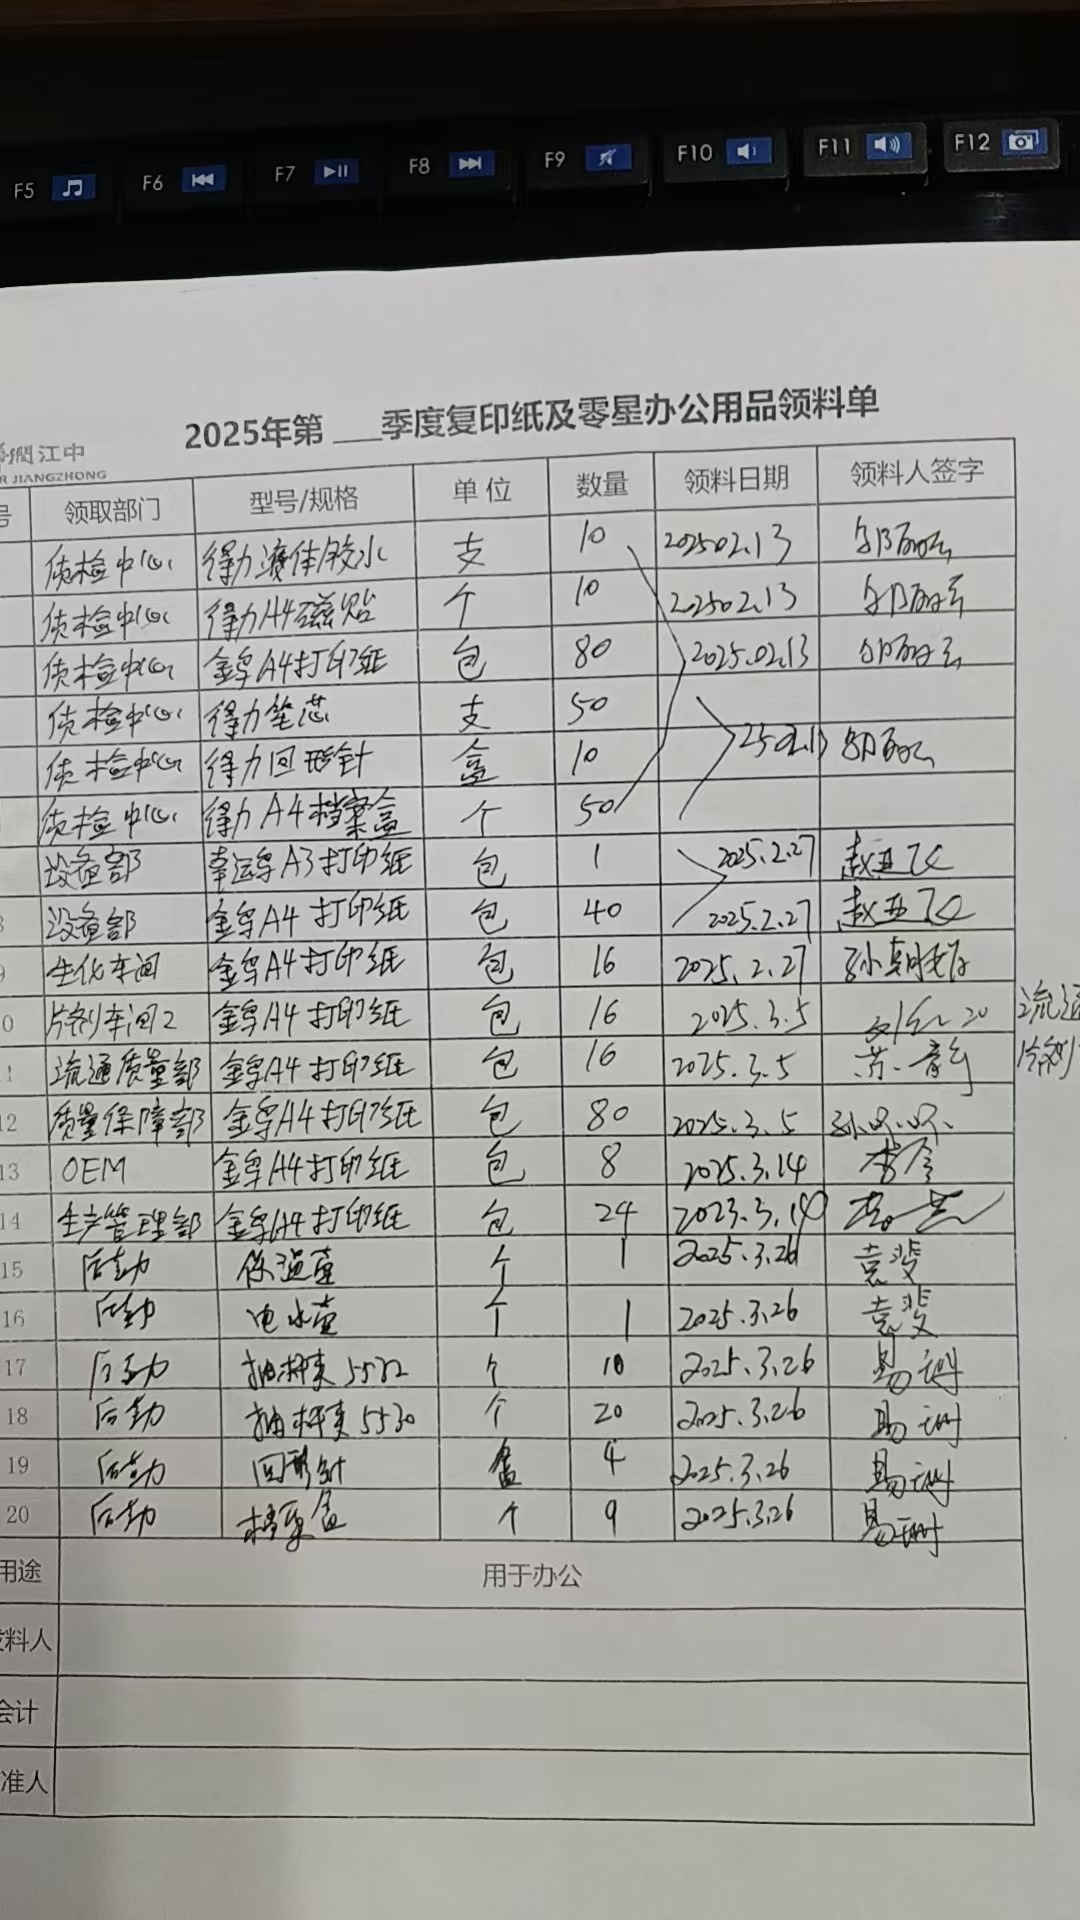 F5 F6 F7 F8 F9 F10 F11 F12
2025年第 ___季度复印纸及零星办公用品领料单
閏江中
R JIANGZHONG
号 领取部门 型号/规格 单位 数量 领料日期 领料人签字
质检中心 得力液体胶水 支 10 202502.13
质检中心 得力A4磁贴 个 10 202502.13
质检中心 金孚A4打印纸 包 80 2025.02.13
质检中心 得力笔芯 支 50
质检中心 得力回形针 盒 10 2502.13
质检中心 得力A4档案盒 个 50
设备部 幸运孚A3打印纸 包 1 2025.2.27 赵亚飞
8 设备部 金孚A4打印纸 包 40 2025.2.27 赵亚飞
9 生化车间 金孚A4打印纸 包 16 2025.2.27
0 片剂车间2 金孚A4打印纸 包 16 2025.3.5 流通
1 流通质量部 金孚A4打印纸 包 16 2025.3.5 片剂
12 质量保障部 金孚A4打印纸 包 80 2025.3.5
13 OEM 金孚A4打印纸 包 8 2025.3.14
14 生产管理部 金孚A4打印纸 包 24 2023.3.14
15 后勤 保温壶 个 1 2025.3.26 袁斐
16 后勤 电水壶 个 1 2025.3.26 袁斐
17 后勤 抽杆夹5532 个 10 2025.3.26 易
18 后勤 抽杆夹5530 个 20 2025.3.26 易
19 后勤 回形针 盒 4 2025.3.26 易
20 后勤 档案盒 个 9 2025.3.26 易
用途 用于办公
料人
会计
准人